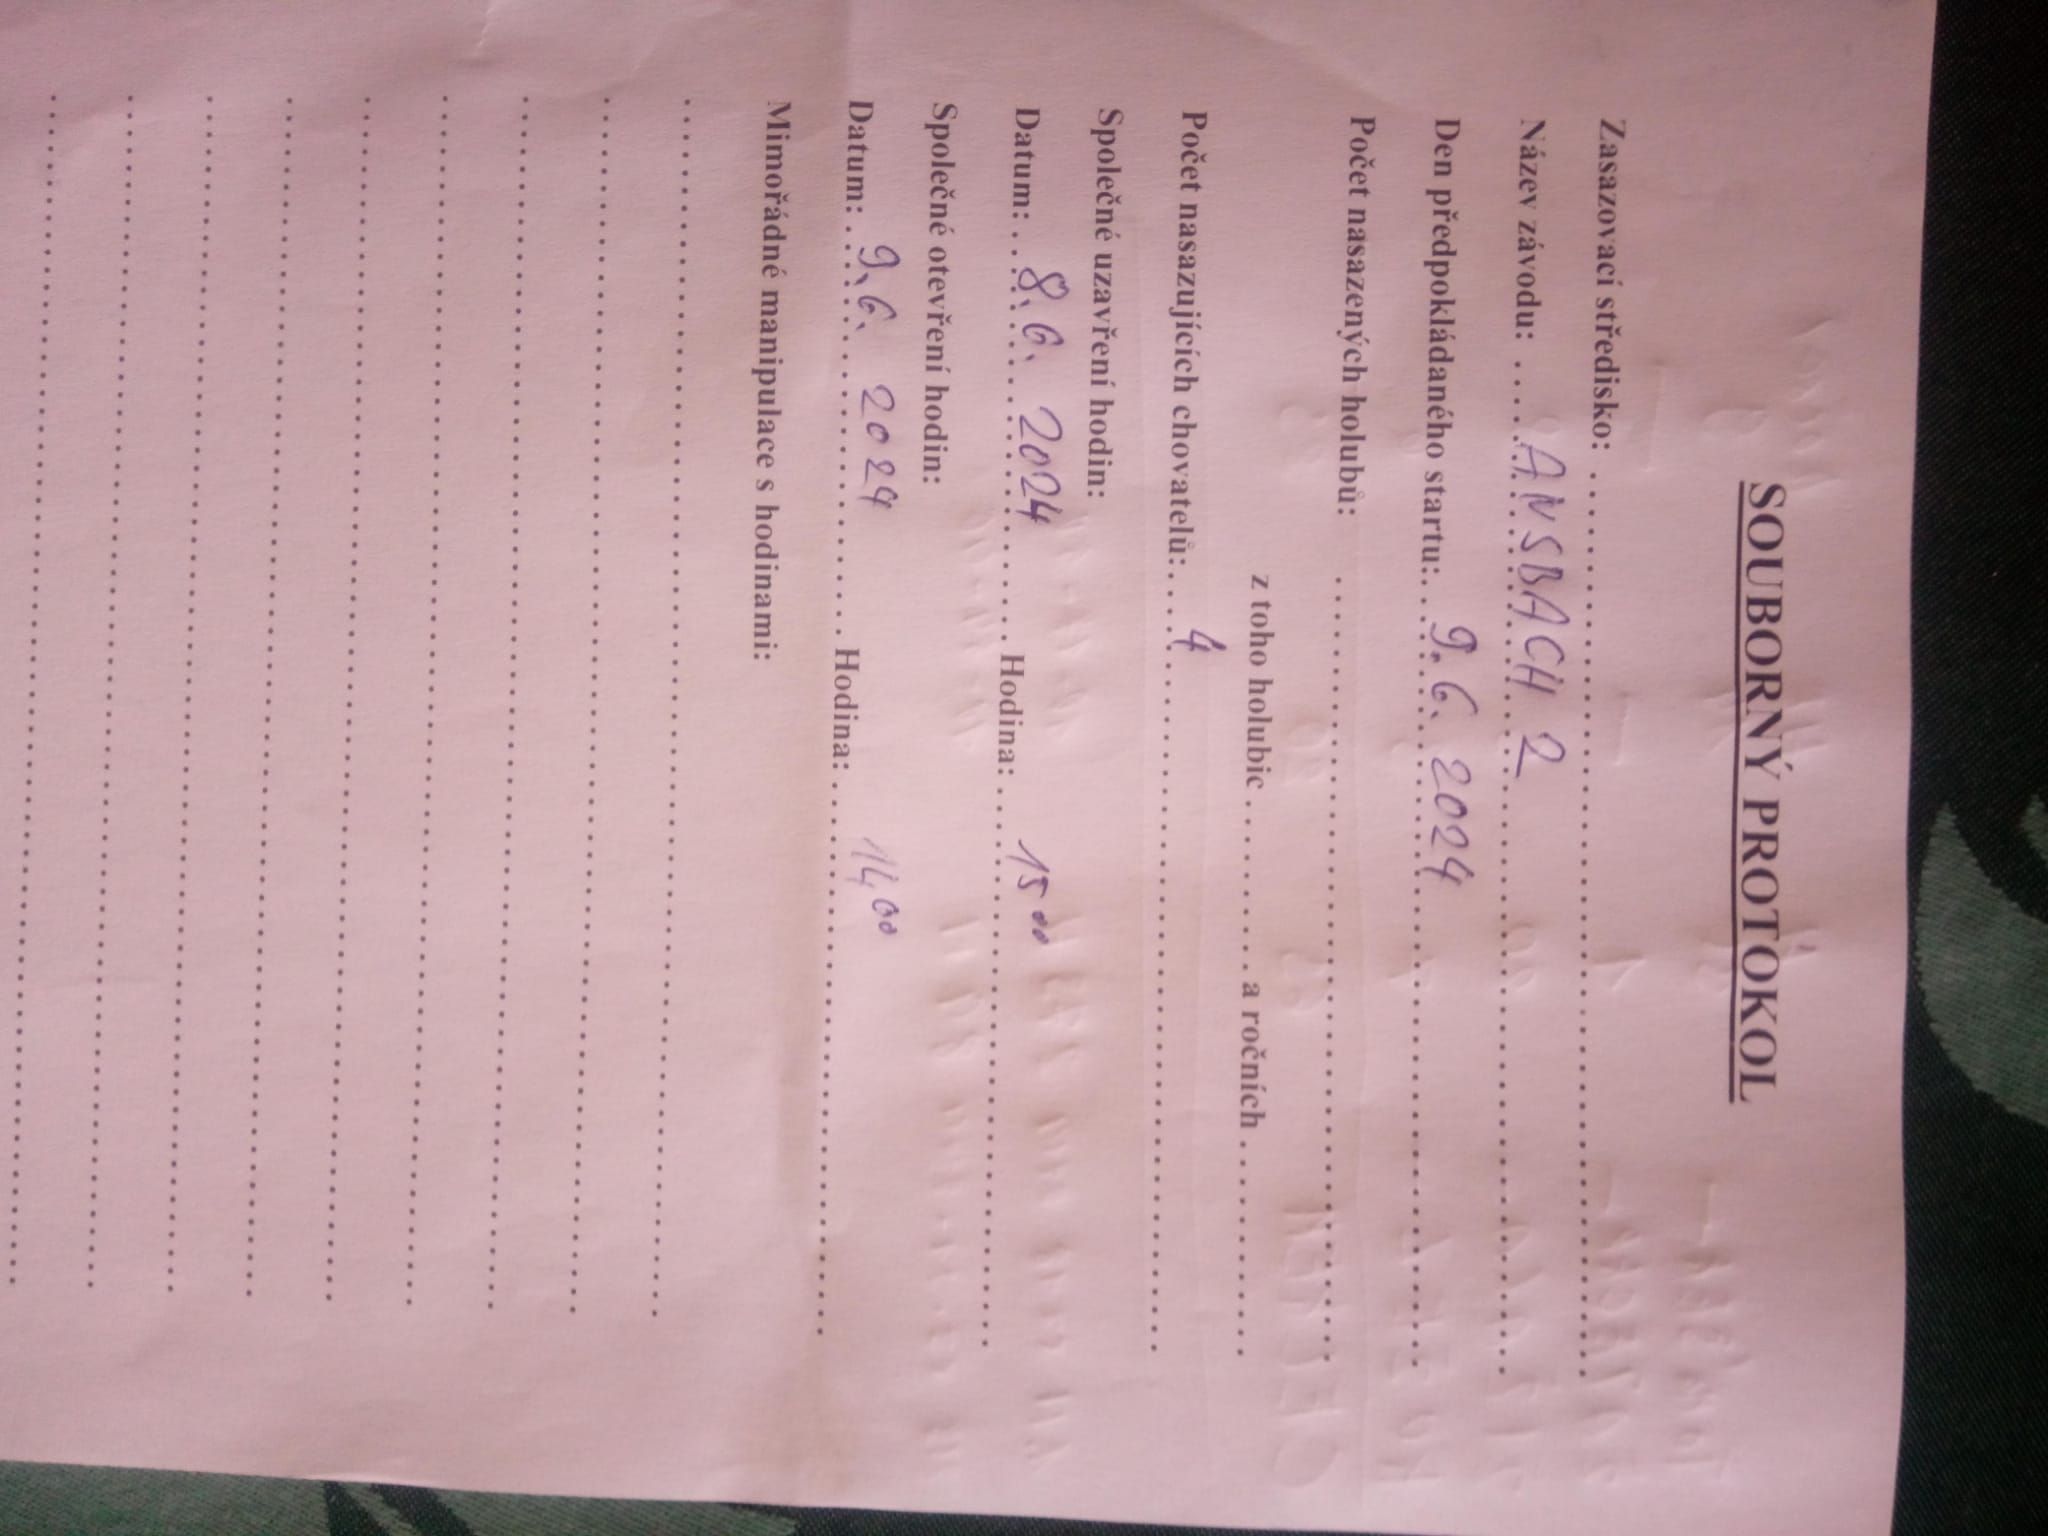 SOUBORNÝ PROTOKOL
Zasazovací středisko:
Název závodu: ANSBACH 2
Den předpokládaného startu: 9.6. 2024
Počet nasazených holubů:
z toho holubic a ročních
Počet nasazujících chovatelů: 4
Společné uzavření hodin:
Datum: 8.6. 2024 Hodina: 15 00
Společné otevření hodin:
Datum: 9.6. 2024 Hodina: 14,00
Mimořádné manipulace s hodinami: